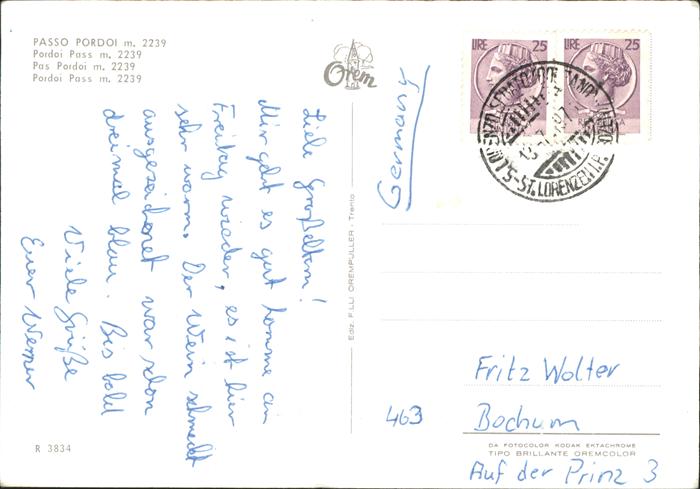 PASSO PORDOI m. 2239
Pordoi Pass m. 2239
Pas Pordoi m. 2239
Pordoi Pass m. 2239
Orem
LIRE 25
LIRE 25
ST. LORENZEN
Germany
Liebe Großeltern!
Mir geht es gut komme am
Freitag wieder, es ist hier
sehr warm. Der Wein schmeckt
ausgezeichnet war schon
dreimal blau. Bis bald
Viele Grüße
Euer Werner
Ediz. F.LLI OREMPULLER - Trento
Fritz Wolter
463 Bochum
DA FOTOCOLOR KODAK EKTACHROME
TIPO BRILLANTE OREMCOLOR
Auf der Prinz 3
R 3834